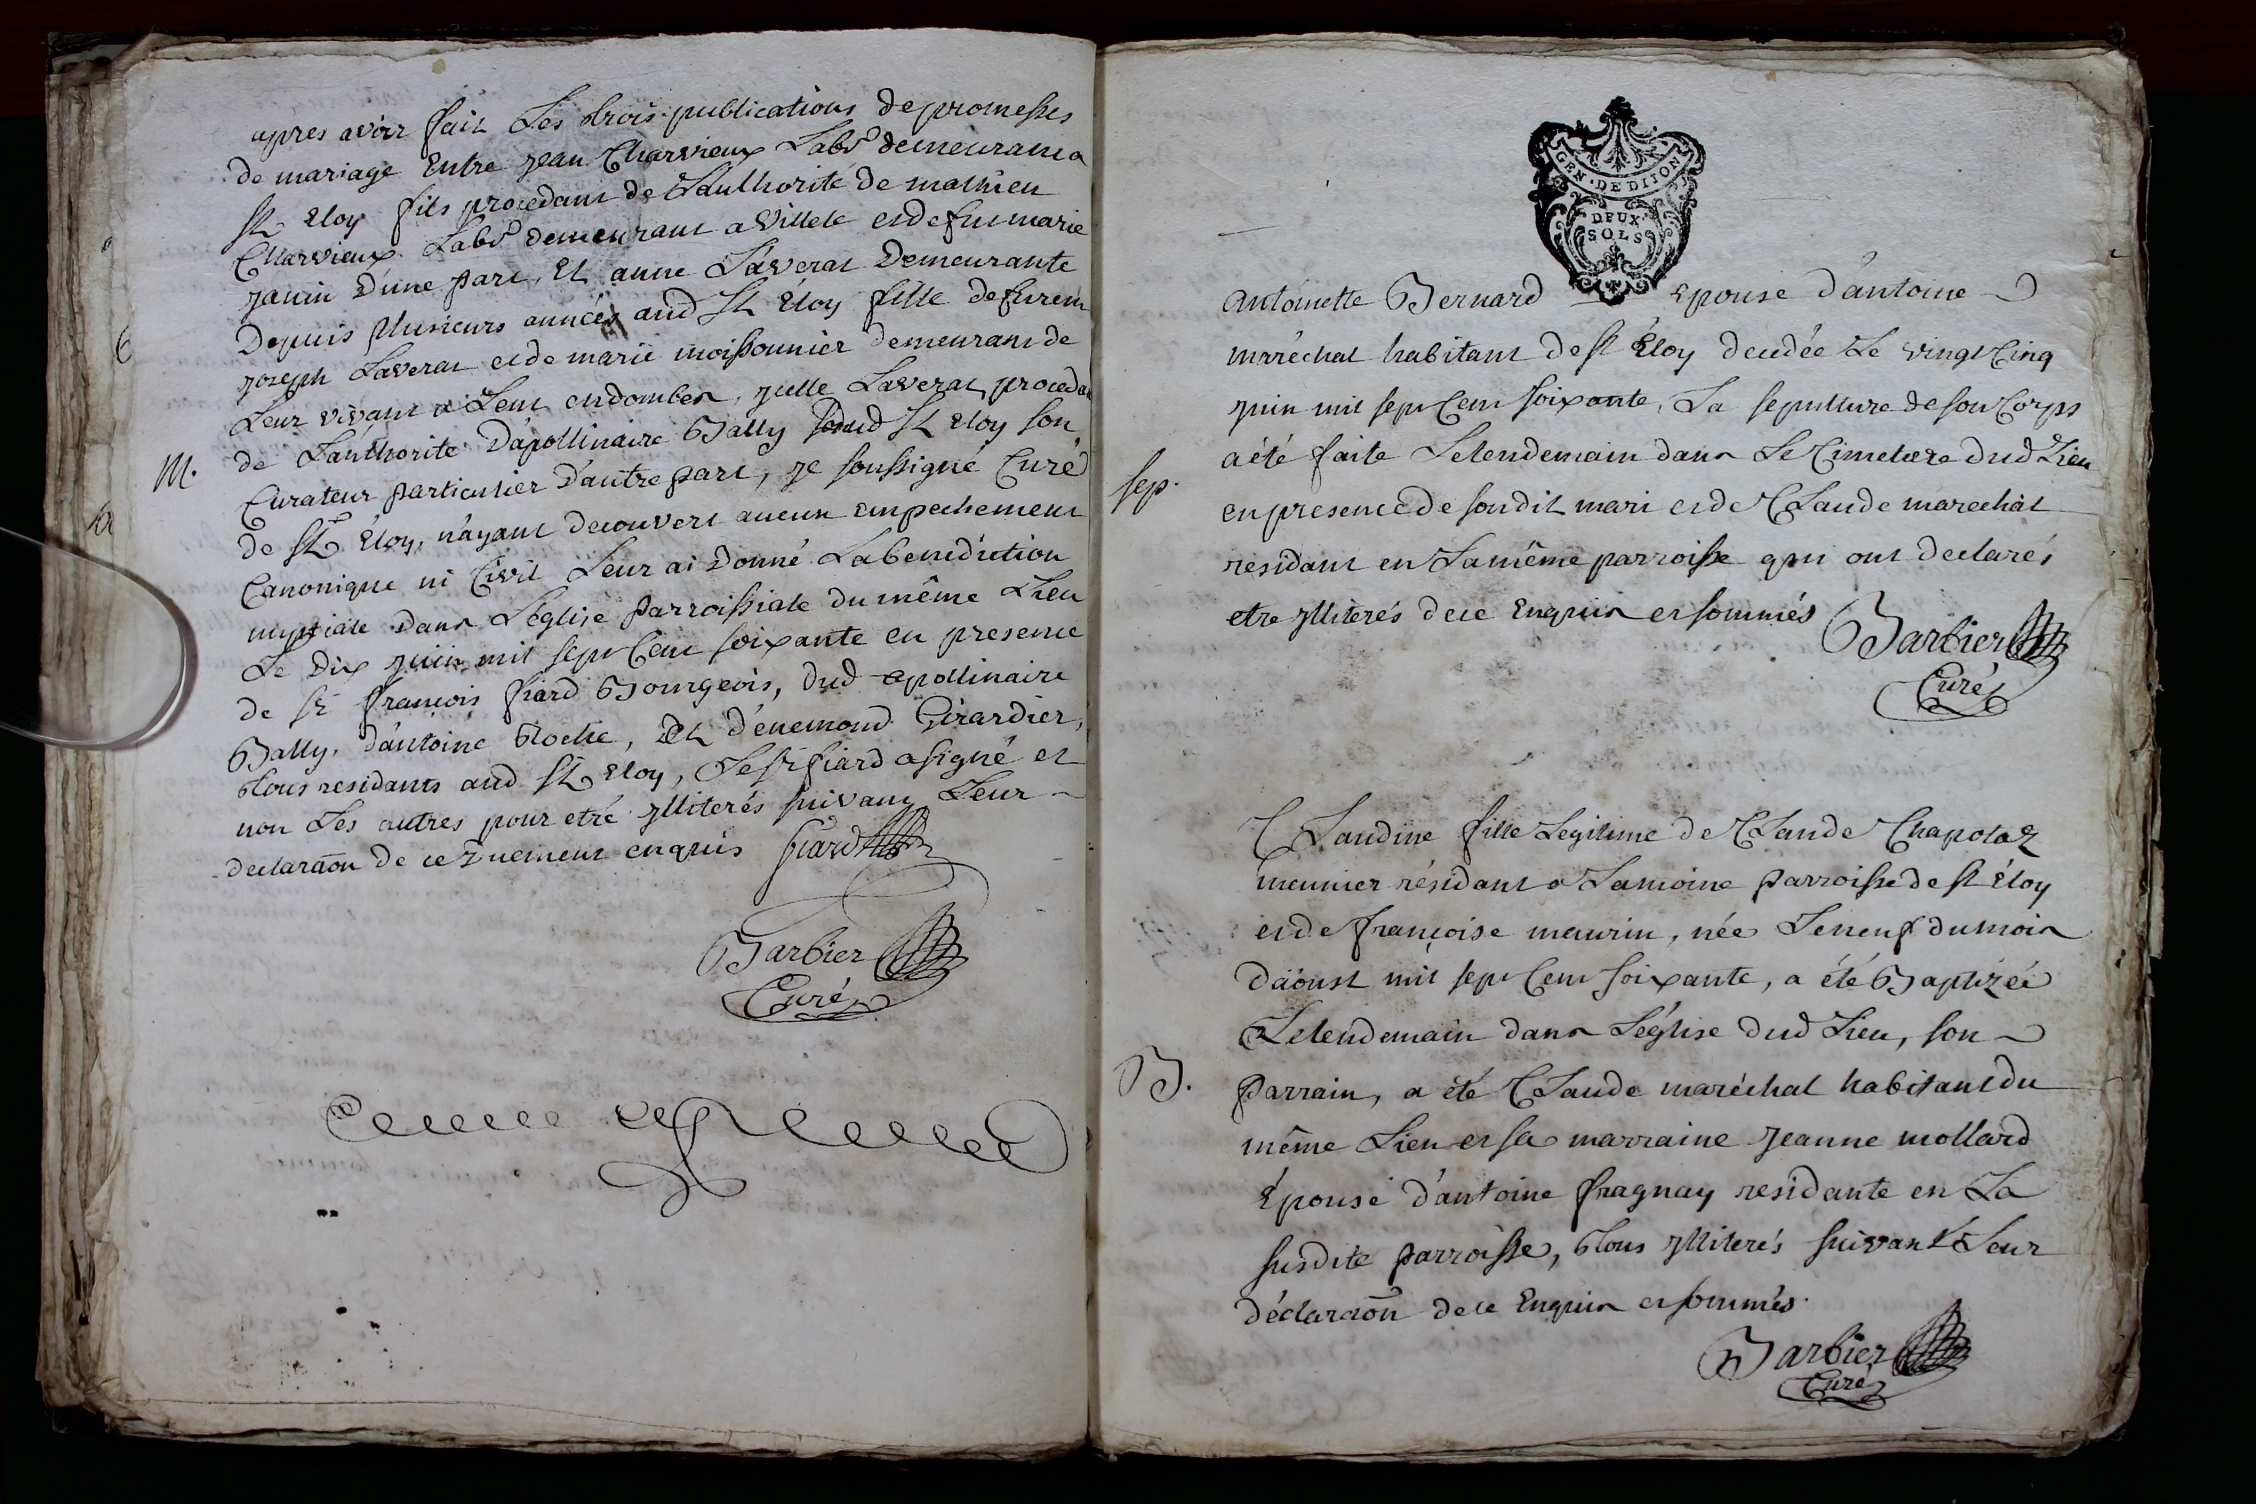 apres avoir fait Les trois publications de promesses
de mariage Entre jean Charvieux Labr demeurant a
St Eloy fils procedant de Lauthorité de mathieu
Charvieux Labr demeurant a Villete et de fut marie
janin D'une part, Et anne Laverat Demeurante
Depuis plusieurs années aud St Eloy fille de furent
joseph Laverat et de marie moissonnier demeurant de
Leur vivant a Lent en dombes, jcelle Laverat proceda
de L'authorité D'apollinaire Bally dud St Eloy son
Curateur particulier D'autre part, je soussigné Curé
de St Eloy, n'ayant decouvert aucun empechement
Canonique ni Civil Leur ai Donné La benediction
nuptiale Dans L'eglise parroissiale du même Lieu
Le Dix juin mil sept Cent soixante en presence
de Sr françois fiard Bourgeois, dud apollinaire
Bally, d'antoine Roche, Et d'enemond Girardier,
tous residants aud St Eloy, Le Sr fiard a signé et
non Les autres pour etre jlliterés suivant Leur
declaraon de ce Duement enquis fiard
M.
Barbier
Curé
GEN · DE DIJON
DEUX
SOLS
Antoinette Bernard Epouse d'antoine
maréchal habitant de St Éloy decedée Le vingt Cinq
juin mil sept Cent soixante, La sepulture de son Corps
a été faite Le lendemain dans Le Cimetiere dud Lieu
en presence de son dit mari et de Claude marechal
residant en La même parroisse qui ont declarés
etre jlliterés de ce Enquis et sommés
sep.
Barbier
Curé
Claudine fille Legitime de Claude Chapolaz
meunier résidant a Lamoine parroisse de St Éloy
et de françoise meurin, née Le neuf du mois
d'àoust mil sept Cent soixante, a été Baptizée
Le lendemain dans L'église dud Lieu, son
parrain, a été Claude maréchal habitant du
même Lieu et sa marraine jeanne mollard
Epouse d'antoine fragnay residante en La
susdite parroisse, tous jlliterés suivant Leur
déclaraon de ce Enquis et sommés.
B.
Barbier
Curé